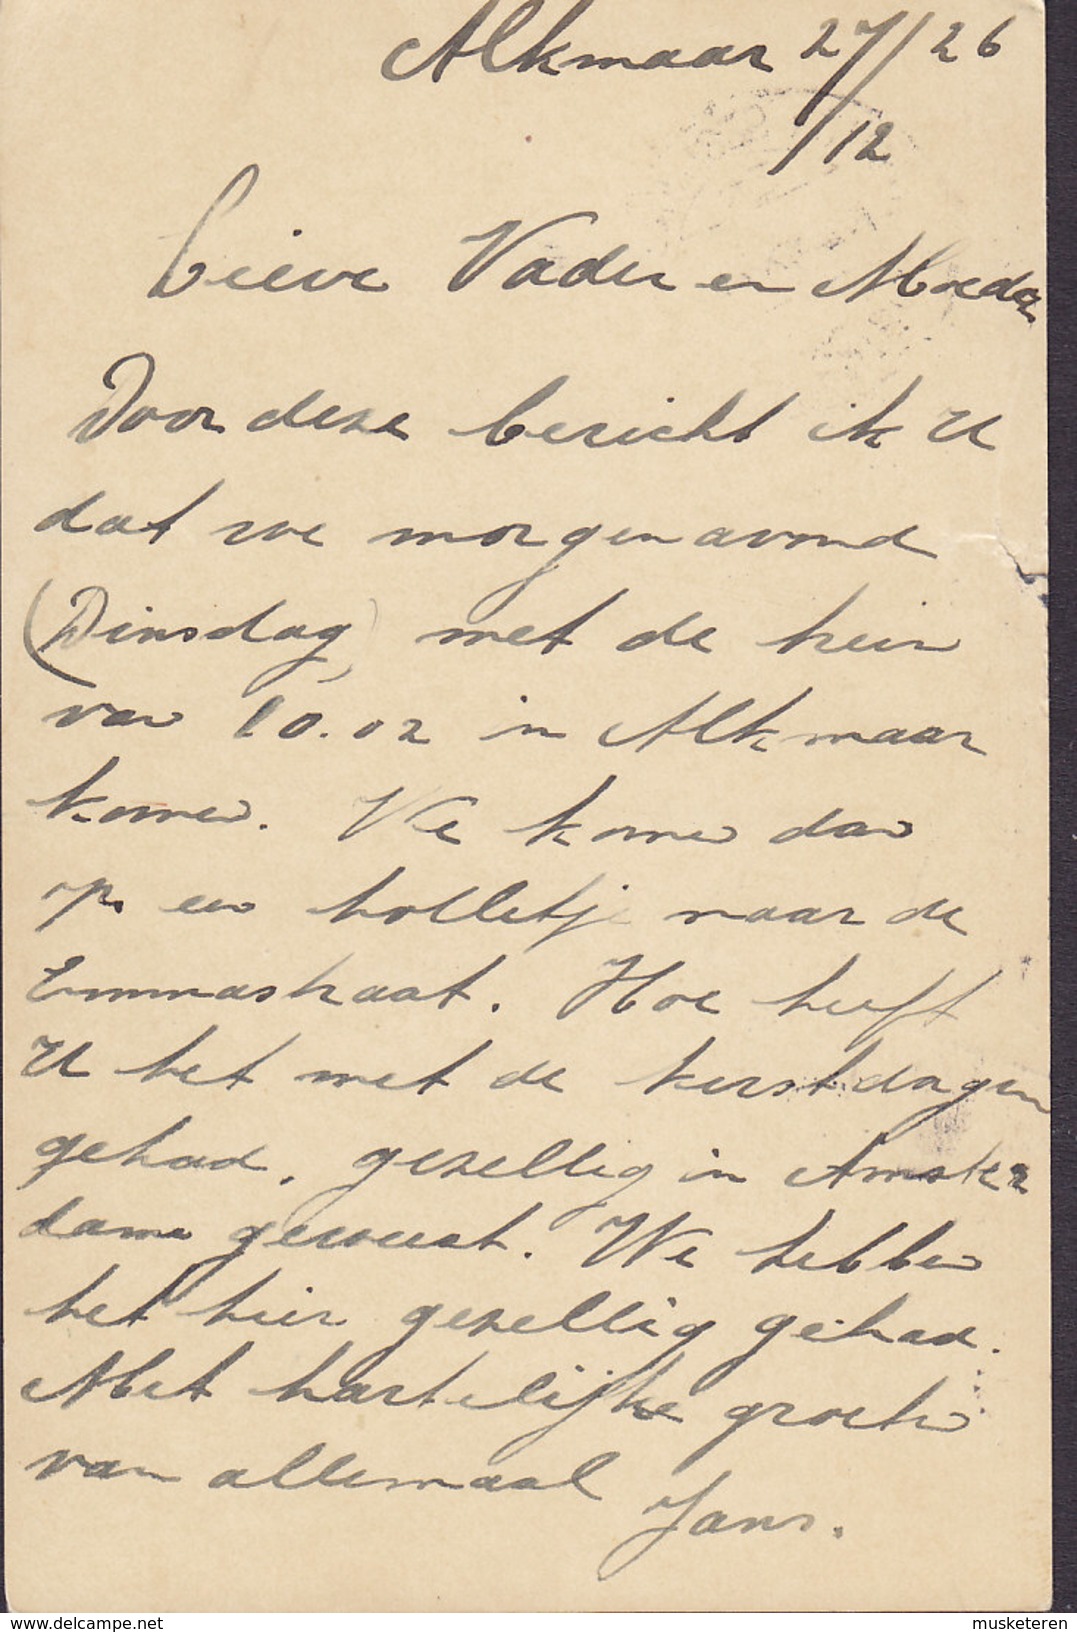 Alkmaar 27/26
/12
Lieve Vader en Moeder
Door deze bericht ik U
dat we morgenavond
(Dinsdag) met de trein
van 10.02 in Alkmaar
komen. We komen dan
op een holletje naar de
Emmastraat. Hoe heeft
U het met de kerstdagen
gehad. gezellig in Amster
dam geweest. We hebben
het hier gezellig gehad.
Met hartelijke groeten
van allemaal Jans.
delcampe.net
musketeren